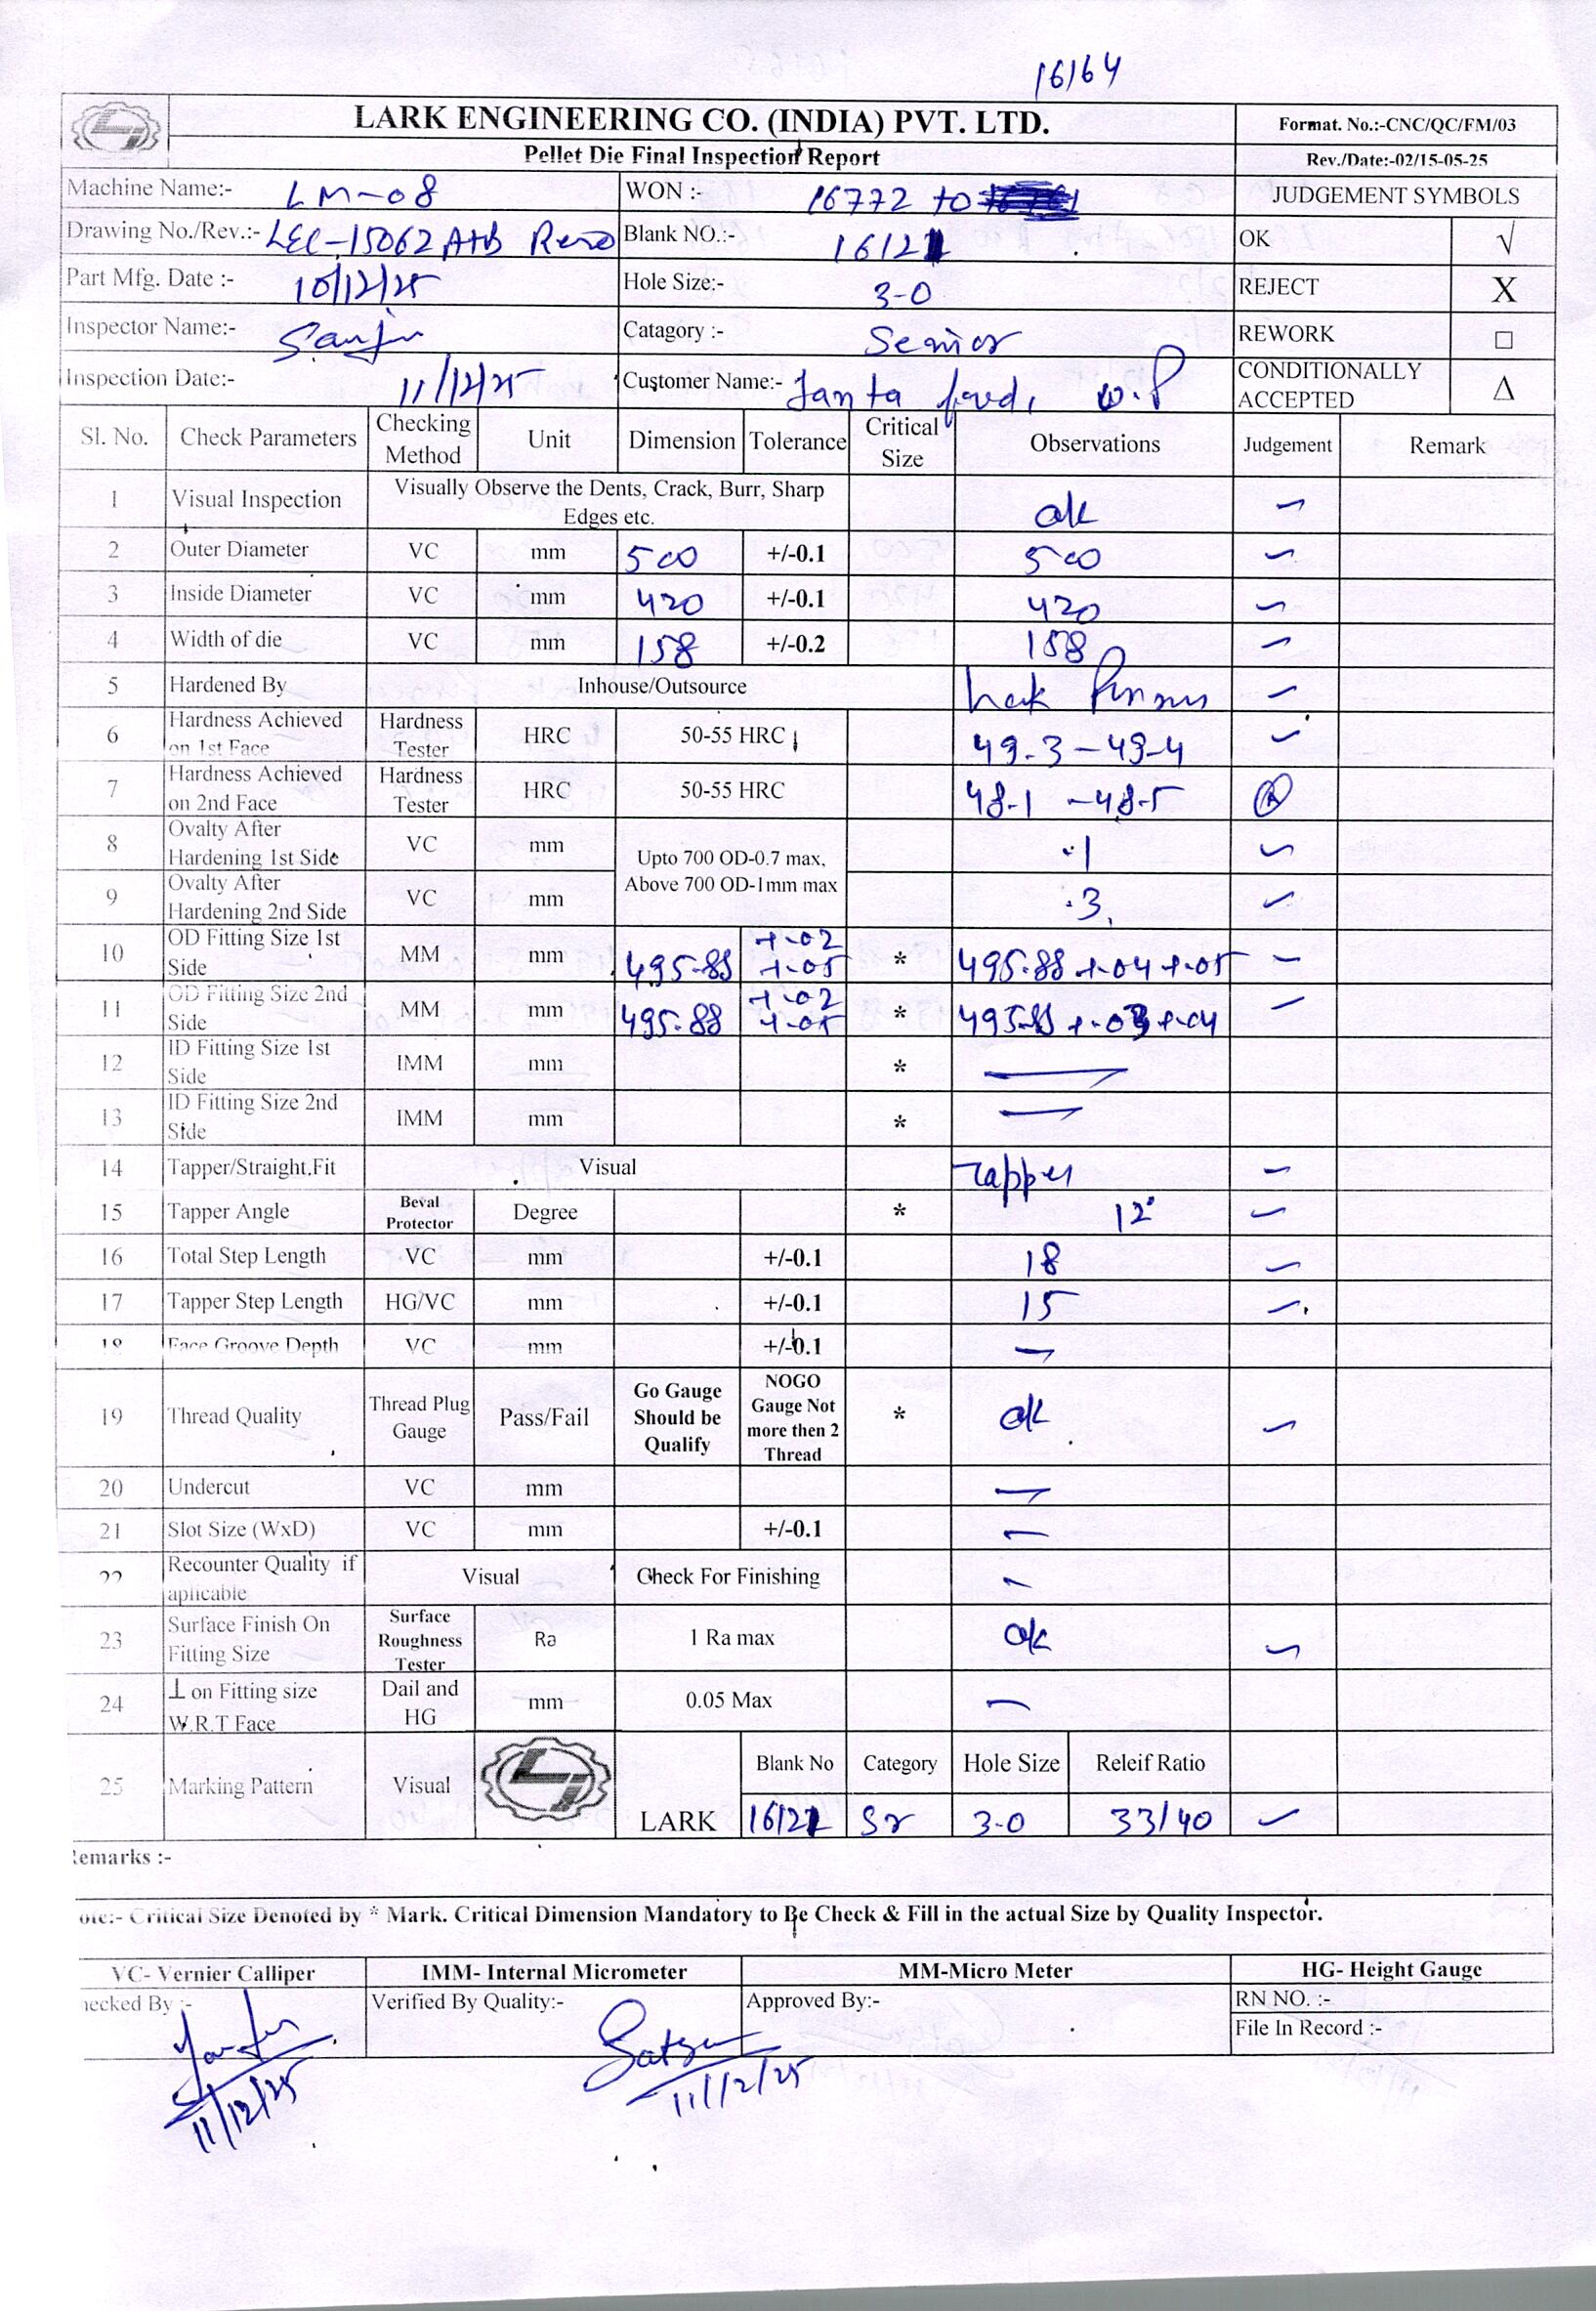 16164
LARK ENGINEERING CO. (INDIA) PVT. LTD.
Format. No.:-CNC/QC/FM/03
Pellet Die Final Inspection Report
Rev./Date:-02/15-05-25
Machine Name:- LM-08 WON :- 16772 to JUDGEMENT SYMBOLS
Drawing No./Rev.:- LEC-15062 A+B Rev0 Blank NO.:- 16121 OK √
Part Mfg. Date :- 10/12/25 Hole Size:- 3-0 REJECT X
Inspector Name:- Sanju Catagory :- Senior REWORK □
Inspection Date:- 11/12/25 Customer Name:- Janta feed, CONDITIONALLY ACCEPTED Δ
Sl. No. Check Parameters Checking Method Unit Dimension Tolerance Critical Size Observations Judgement Remark
1 Visual Inspection Visually Observe the Dents, Crack, Burr, Sharp Edges etc. ok
2 Outer Diameter VC mm 500 +/-0.1 500
3 Inside Diameter VC mm 420 +/-0.1 420
4 Width of die VC mm 158 +/-0.2 158
5 Hardened By Inhouse/Outsource
6 Hardness Achieved on 1st Face Hardness Tester HRC 50-55 HRC 49.3 - 49-4
7 Hardness Achieved on 2nd Face Hardness Tester HRC 50-55 HRC 48-1 - 48-5
8 Ovalty After Hardening 1st Side VC mm Upto 700 OD-0.7 max, Above 700 OD-1mm max .1
9 Ovalty After Hardening 2nd Side VC mm .3
10 OD Fitting Size 1st Side MM mm 495.88 +.02 +.05 * 495.88 +.04 +.05
11 OD Fitting Size 2nd Side MM mm 495.88 +.02 +.05 * 495.88 +.03 +.04
12 ID Fitting Size 1st Side IMM mm *
13 ID Fitting Size 2nd Side IMM mm *
14 Tapper/Straight.Fit Visual Tapper
15 Tapper Angle Beval Protector Degree * 12°
16 Total Step Length VC mm +/-0.1 18
17 Tapper Step Length HG/VC mm +/-0.1 15
18 Face Groove Depth VC mm +/-0.1
19 Thread Quality Thread Plug Gauge Pass/Fail Go Gauge Should be Qualify NOGO Gauge Not more then 2 Thread * ok
20 Undercut VC mm
21 Slot Size (WxD) VC mm +/-0.1
22 Recounter Quality if aplicable Visual Check For Finishing
23 Surface Finish On Fitting Size Surface Roughness Tester Ra 1 Ra max ok
24 ⊥ on Fitting size W.R.T Face Dail and HG mm 0.05 Max
25 Marking Pattern Visual LARK Blank No Category Hole Size Releif Ratio
16121 Sr 3-0 33/40
emarks :-
ote:- Critical Size Denoted by * Mark. Critical Dimension Mandatory to Be Check & Fill in the actual Size by Quality Inspector.
VC- Vernier Calliper IMM- Internal Micrometer MM-Micro Meter HG- Height Gauge
ecked By :- Verified By Quality:- Approved By:- RN NO. :-
File In Record :-
11/12/25 11/12/25